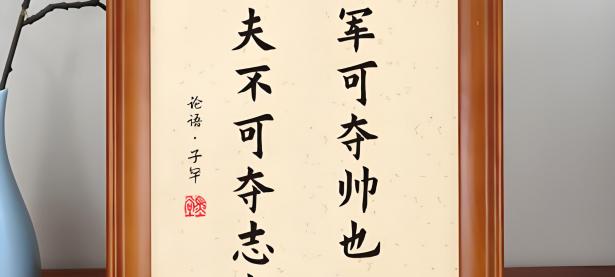 军可夺帅也
夫不可夺志
论语·子罕